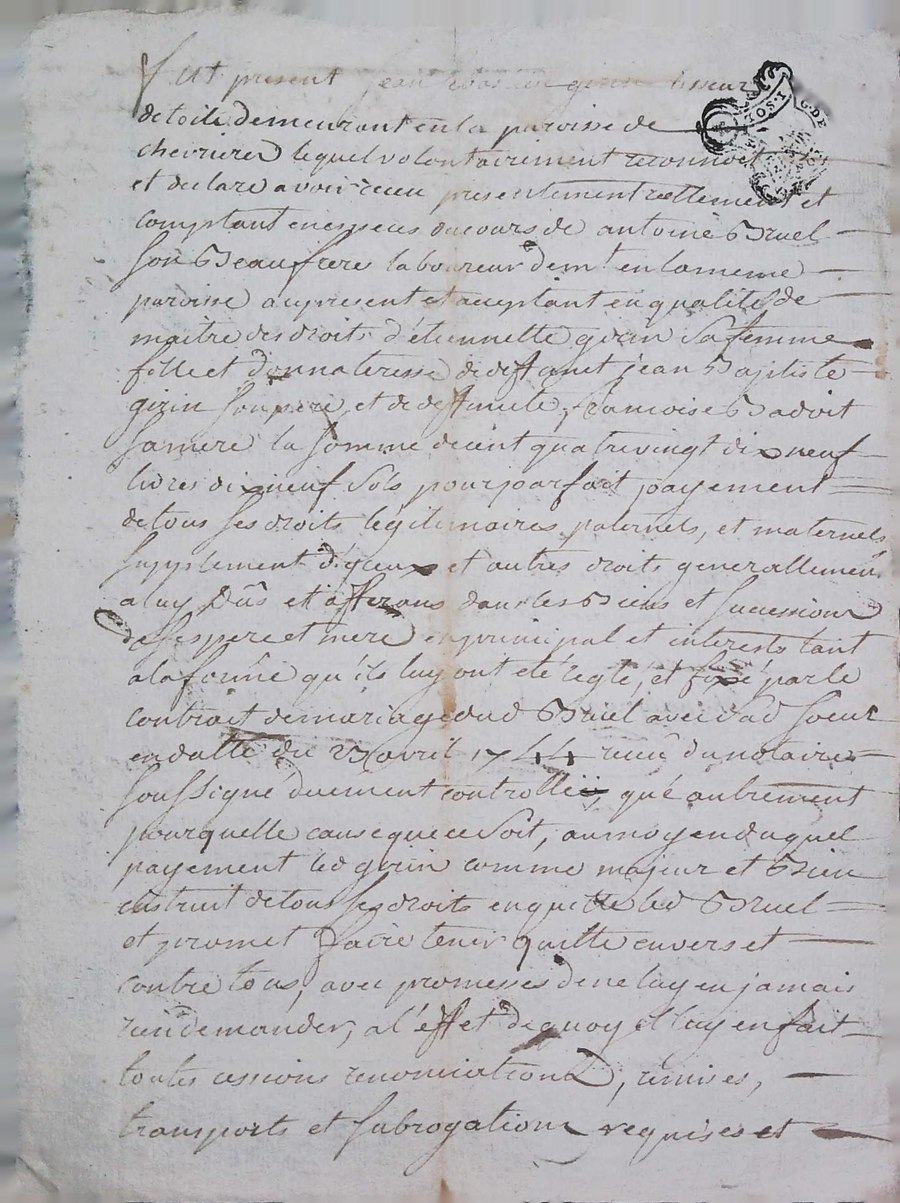 Fut present jean girin tisseur
de toile demeurant en la paroisse de
chevrieres lequel volontairement reconnoit
et declare avoir receu presentement reellement et
comptant en especes du cours de antoine Bruel
son Beaufrere laboureur demt en la meme
paroisse acy present et acceptant en qualité de
maitre des droits d'étiennette girin sa femme
fille et donnateresse de deffunt jean Baptiste
girin son pere, et de deffunte françoise Badoit
sa mere la somme de cent quatrevingt dix neuf
livres dix neuf sols pour parfait payement
de tous ses droits légitimaires, paternels, et maternels
supplement d'yceux et autres droits generallement
a luy dûs et afferans dans les Biens et successions
de ses pere et mere en principal et interests tant
a la forme qu'ils luy ont eté réglé, et fixé par le
contrait de mariage dud Bruel avec lad soeur
en datte du 23 avril 1744 receu du notaire
soussigné duement controllée, qué autrement
pour quelle cause que ce soit, au moyen duquel
payement led girin comme majeur et Bien
instruit de tous ses droits en quitte led Bruel
et promet faire tenir quitte envers et
contre tous, avec promesses de ne luy en jamais
rien demander, a l'effet de quoy il luy en fait
toutes cessions renonciations, remises,
transports et subrogations requises et